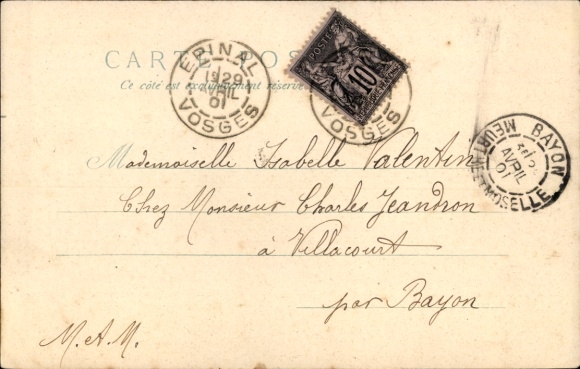 CARTE POS
Ce côté est exclusivement réservé
EPINAL
29
AVRIL
01
VOSGES
POSTES
10
VOSGES
BAYON
AVRIL
01
MEURTHE-ET-MOSELLE
Mademoiselle Isabelle Valentin
Chez Monsieur Charles Jeandron
à Villacourt
par Bayon
M.A.M.